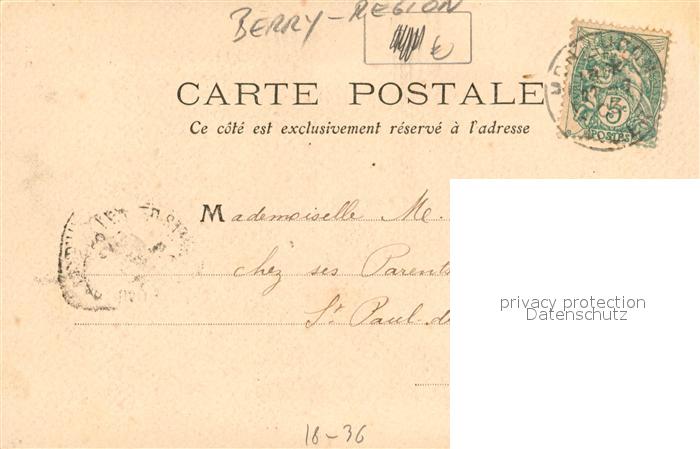 BERRY-REGION
€
CARTE POSTALE
Ce côté est exclusivement réservé à l'adresse
5c
POSTES
Mademoiselle Me.
chez ses Parents
St Paul-d
privacy protection
Datenschutz
18-36